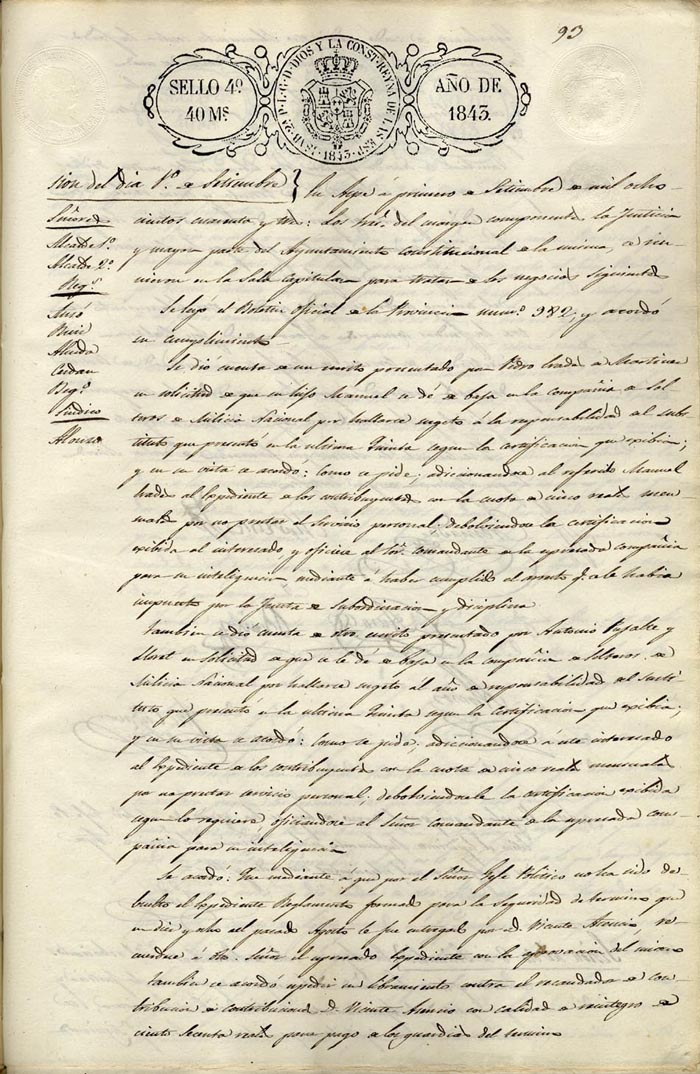 93
SELLO 4º
40 Ms.
ISAB. 2ª P. L. G. D. DIOS Y LA CONST. REYNA DE LAS ESP.
1843
AÑO DE
1843.
sion del dia 1º de Setiembre
Señores
Alcalde 1º
Alcalde 2º
Regs.
Buil
Almda
Cerdan
Síndico
Alonso
En Aspe á primero de Setiembre de mil ocho
cientos cuarenta y tres: Los Sres. del margen componentes la Justicia
y mayor parte del Ayuntamiento constitucional de la misma, se reu-
nieron en la Sala Capitular para tratar de los negocios siguientes
Se leyó el Boletin oficial de la Provincia numº 982, y acordó
su cumplimiento
Se dió cuenta de un escrito presentado por Pedro Martinez
en solicitud de que su hijo Manuel se dé de baja en la compañia de Sol
teros de Milicia Nacional por hallarse sugeto á la responsabilidad del subs
tituto que presentó en la ultima Quinta segun la certificacion que exibia;
y en su vista se acordó: Como se pide, adicionandose al referido Manuel
al Espediente de los contribuyentes con la cuota de cinco reales men
suales por no prestar el servicio personal; debolviendose la certificacion
exibida al interesado, y oficiese al Sor. Comandante de la espresada compañia
para su inteligencia mediante á haber cumplido el q. se le habia
impuesto por la Junta de Subordinacion y disciplina
Tambien se dió cuenta de otro escrito presentado por Antonio Pujalte y
en solicitud de que se le dé de baja en la compañia de Solteros de
Milicia Nacional por hallarse sugeto al año de responsabilidad del susti-
tuto que presentó en la ultima Quinta segun la certificacion que exibia;
y en su vista se acordó: Como se pide, adicionandose á este interesado
al Espediente de los contribuyentes con la cuota de cinco reales mensuales
por no prestar servicio personal; debolviendosele la certificacion exibida
segun lo requiere oficiandose al Señor Comandante de la espresada com
pañia para su inteligencia
Se acordó: Que mediante á que por el Señor Gefe Politico no ha sido de-
buelto el Espediente Reglamento formado para la seguridad de termino que
en diez y nueve del pasado Agosto le fue entregado por D. Vicente Asencio, re
cuerdese á dho. Señor el espresado Espediente con la aprovacion del mismo
Tambien se acordó espedir un libramiento contra el recaudador de con
tribucion de contribuciones D. Vicente Asencio con calidad de reintegro de
ciento sesenta reales para pago á los guardias del termino